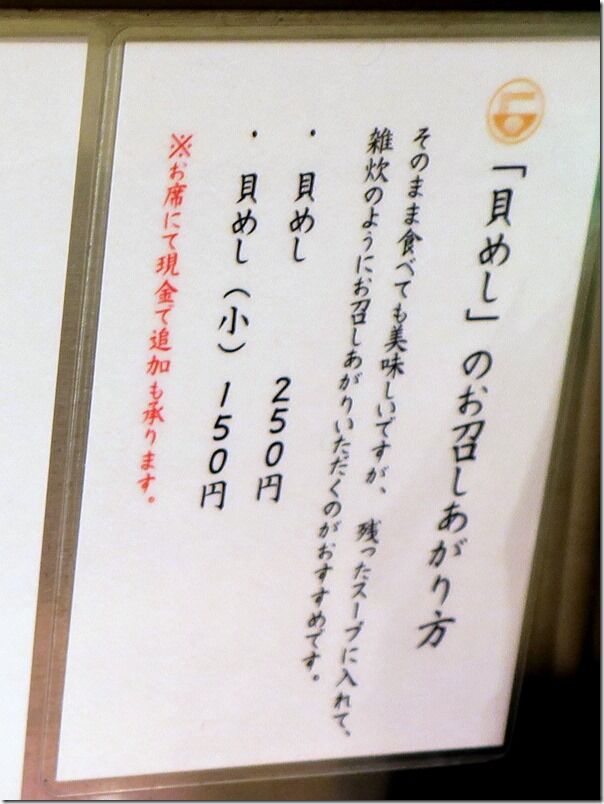 「貝めし」のお召しあがり方
そのまま食べても美味しいですが、残ったスープに入れて、
雑炊のようにお召しあがりいただくのがおすすめです。
・貝めし 250円
・貝めし（小）150円
※お席にて現金で追加も承ります。